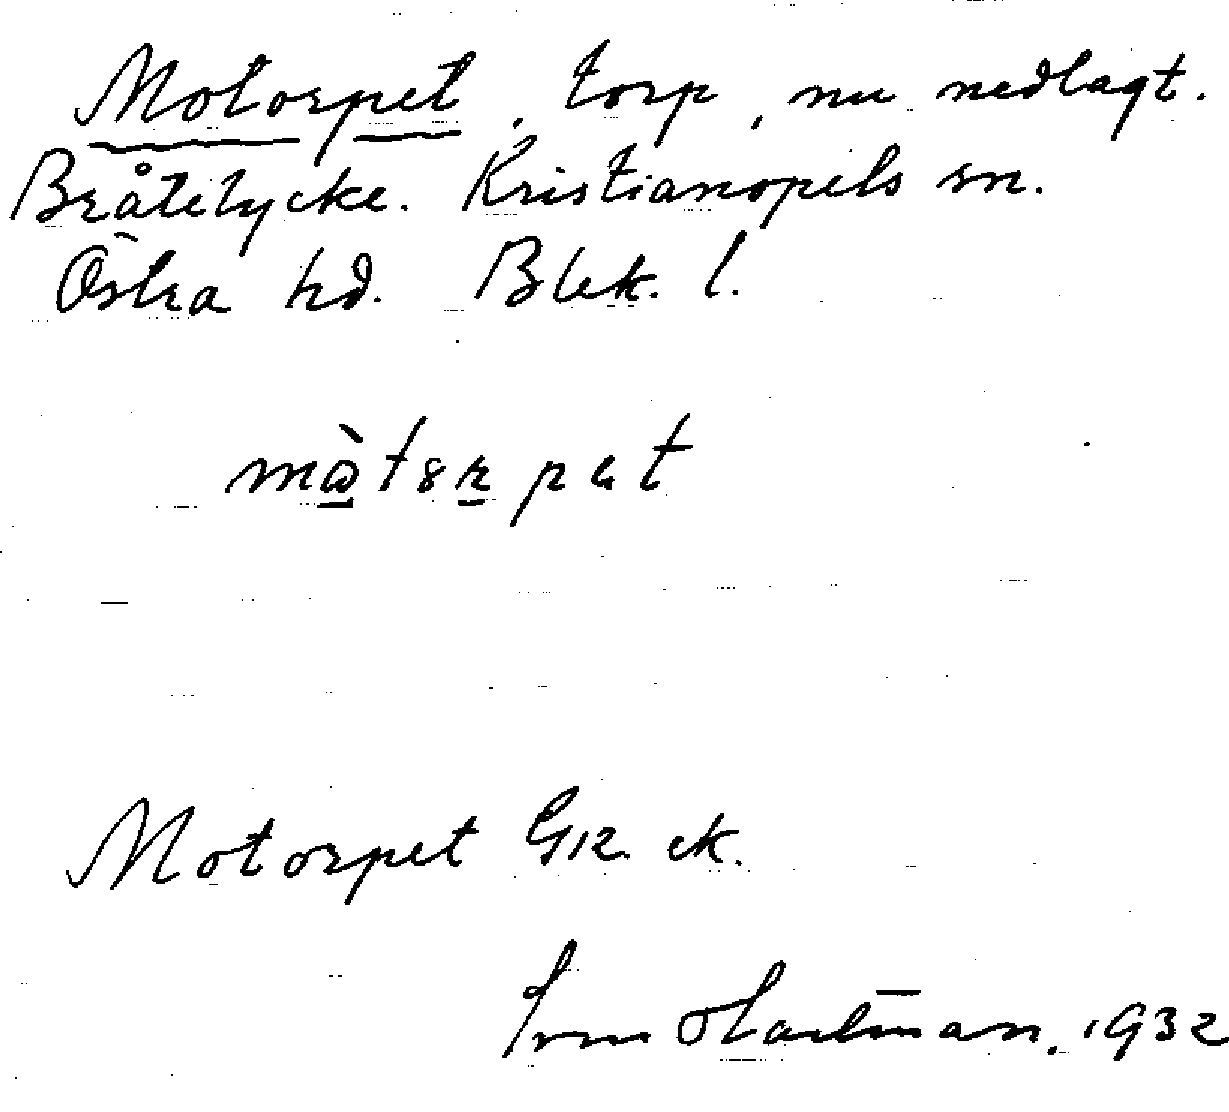 Motorpet, torp, nu nedlagt.
Bråtelycke. Kristianopels sn.
Östra hd. Blek. l.
Motorpet GK ek.
Hartman. 1932